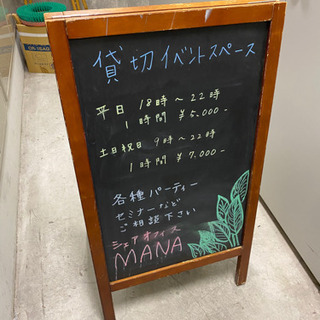 貸切イベントスペース
平日 18時～22時
1時間 ¥5,000-
土日祝日 9時～22時
1時間 ¥7,000-
各種パーティー
セミナーなど
ご相談下さい
シェアオフィス
MANA